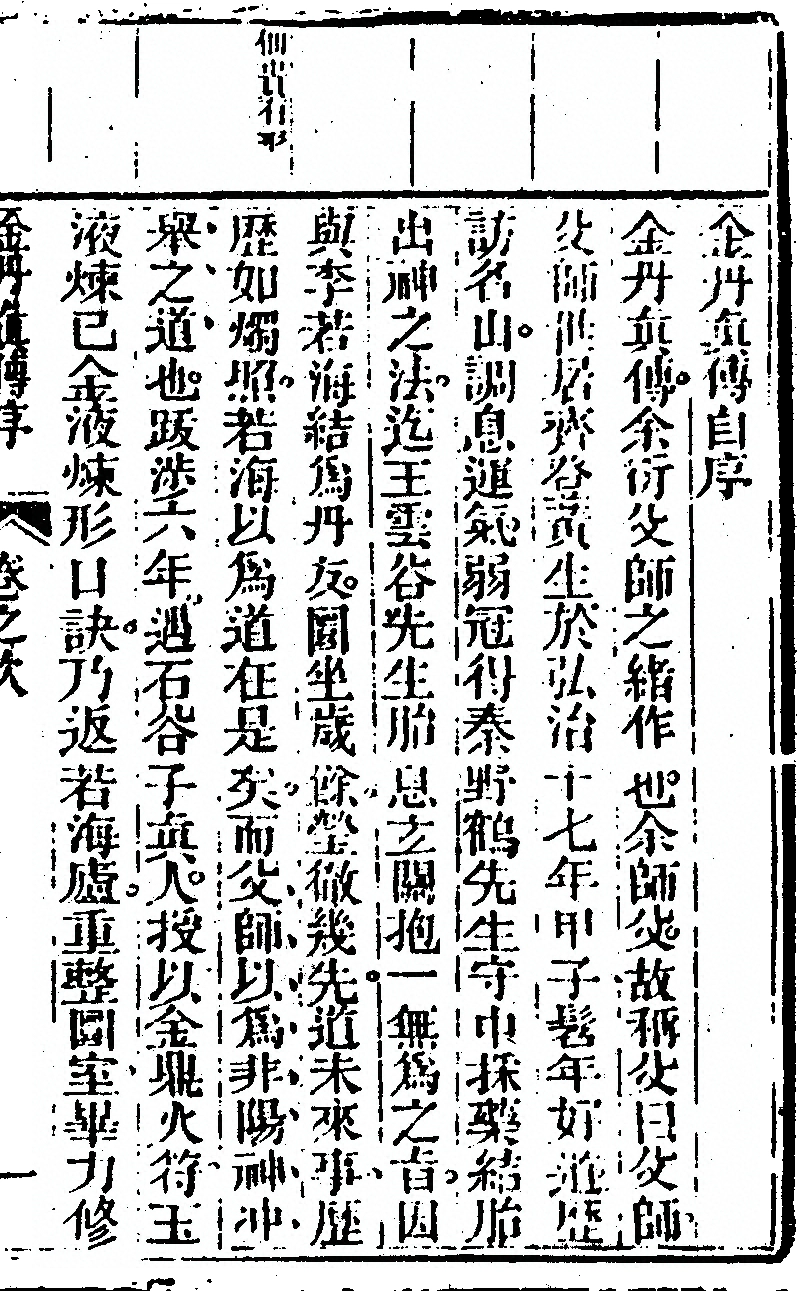 金丹真傳自序
金丹真傳余衍父師之緒作也余師父故稱父曰父師
父師世居齊谷黃生於弘治十七年甲子髫年好遊歷
訪名山調息運氣弱冠得秦野鶴先生守中採藥結胎
出神之法迄王雲谷先生胎息玄關抱一無爲之旨因
與李若海結爲丹友圜坐歲餘瑩徹幾先道未來事歷
歷如燭照若海以爲道在是矣而父師以爲非陽神冲
舉之道也跋涉六年遇石谷子眞人授以金鼎火符玉
液煉已金液煉形口訣乃返若海廬重整圜室畢力修
金丹真傳序
卷之次
一